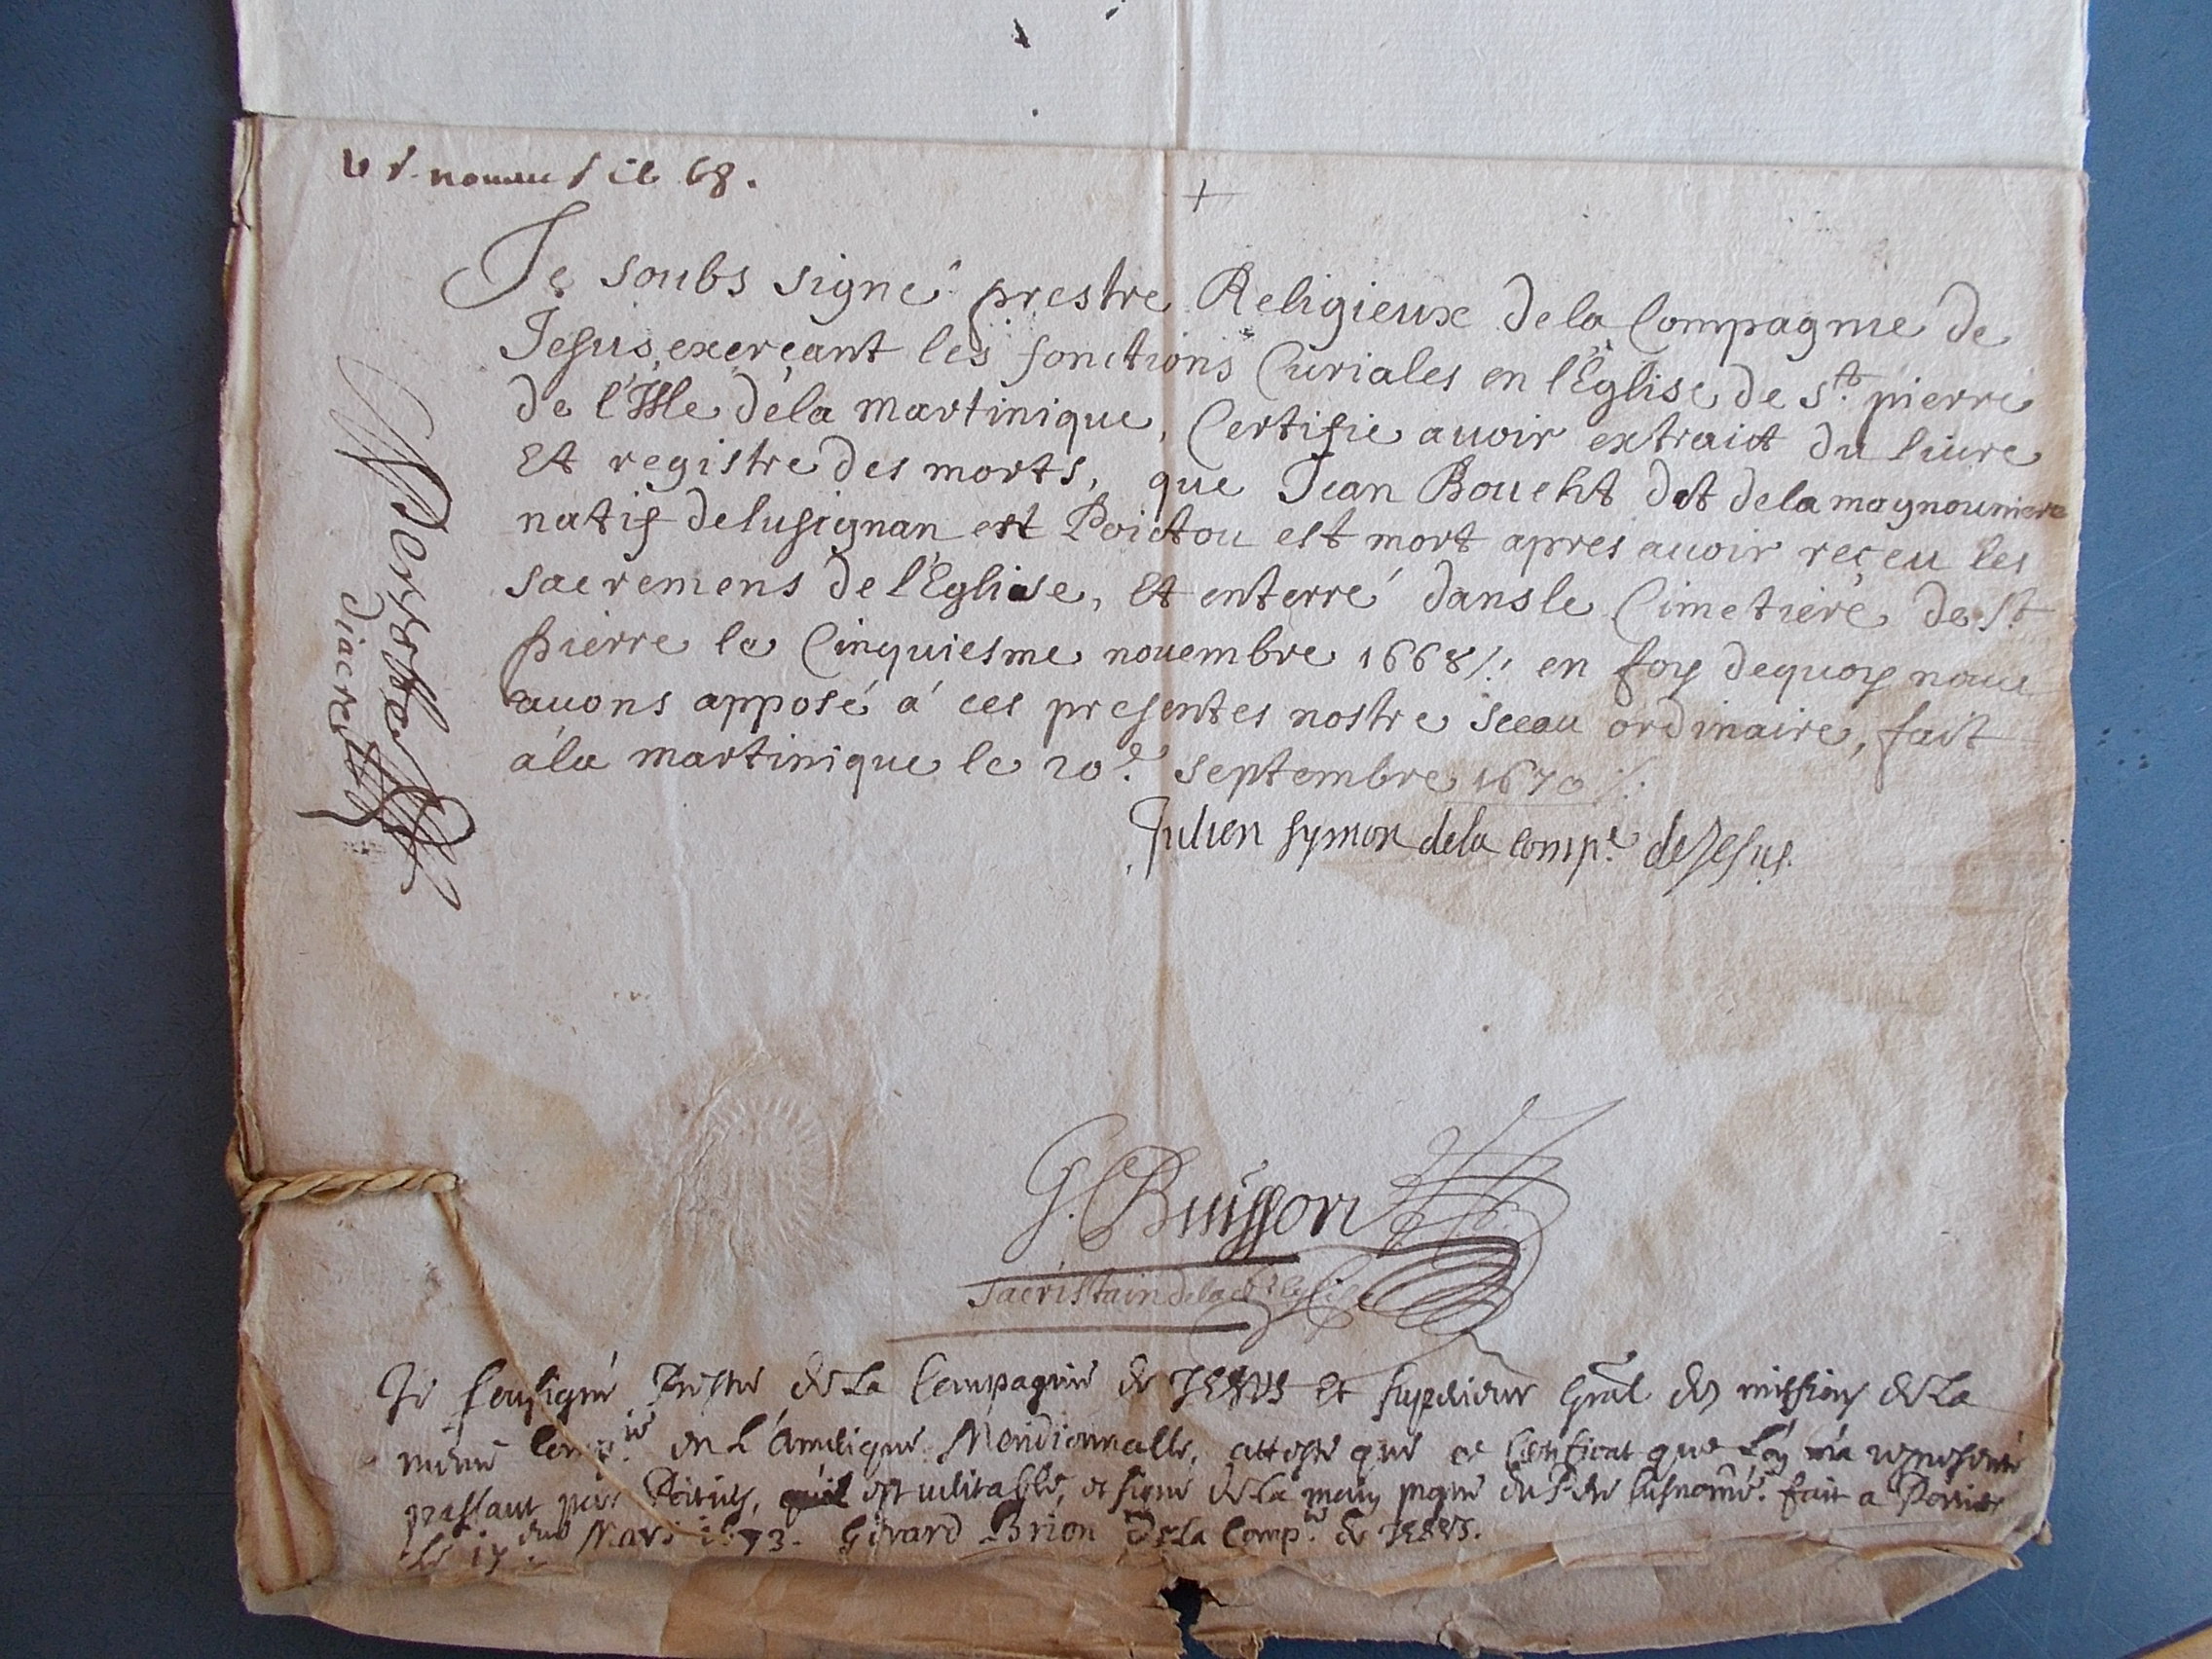 nouue 68.
Je soubs signé prestre Religieux de la Compagnie de
Jesus, exerçant les fonctions Curiales en l'Eglise de St. pierre
de l'Isle de la martinique, Certifie auoir extraict du liure
Et registre des morts, que Jean Boucht dit de la magnouniere
natif de lusignan est Poictou est mort apres auoir reçeu les
sacremens de l'Eglise, Et enterré dans le Cimetiere de St
pierre le Cinquiesme nouembre 1668 ∕. en foy dequoy nous
auons apposé á ces presentes nostre sceau ordinaire, fait
á la martinique le 20e. septembre 1670 ∕.
Julien Symon de la compe. de Jesus.
diacre
G. Buisson
Sacristain de lad. Eglise
Je soussigné Prestre de La Compagnie de JESUS et superieur Gñal des missions de La
mesme Compie en L'Amerique Meridionnalle, atteste que ce Certificat que l'on m'a representé
passant par Poitiers, est veritable, et signé de La main propre du Pere susnommé. fait a Poitiers
Le 17 Mars 1673. Gerard Brion de La Compie. de JESUS.